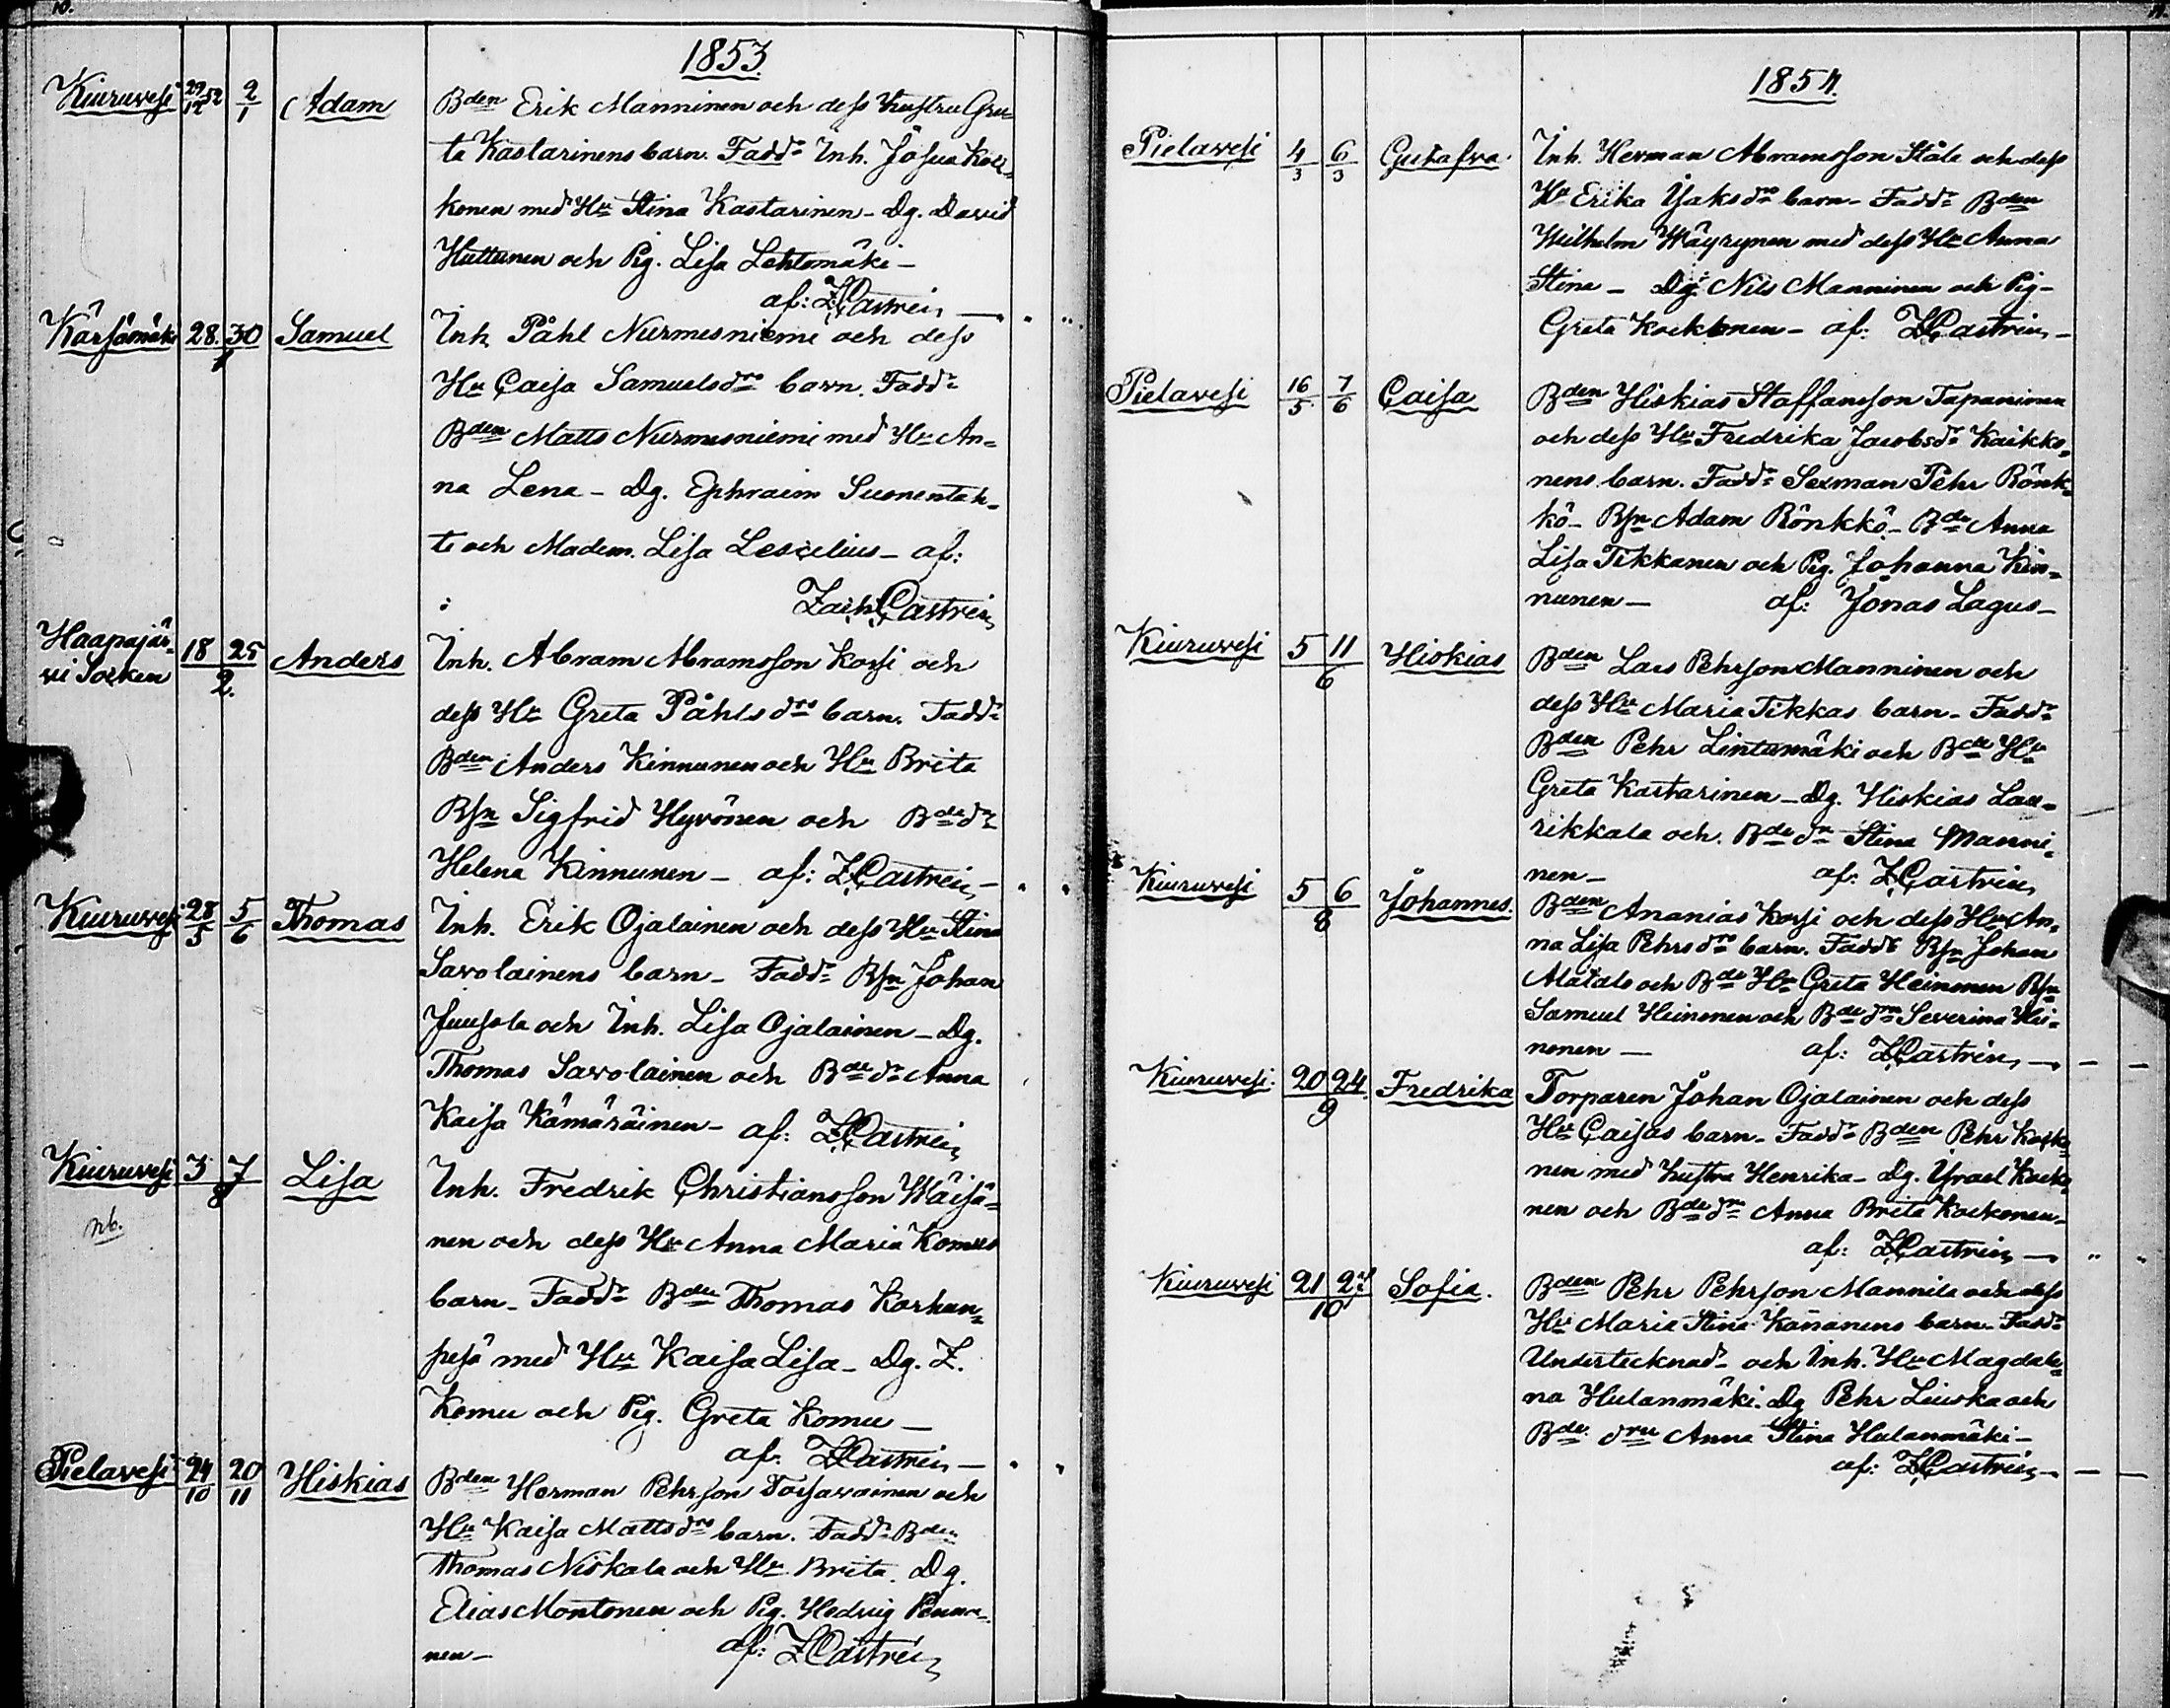 10.
1853.
Kiuruvesi 29/12 52 2/1 Adam
Bden Erik Manninen och dess hustru Gre=
ta Kastarinens barn. Faddr Inh. Josua Koc=
konen med Hu Stina Kastarinen - Dg. David
Huttunen och Pig. Lisa Lehtomäki -
af: Z Castrén
Kärsämäki 28. 30 1 Samuel
Inh. Påhl Nurmesniemi och dess
Hu Caisa Samuelsdrs barn. Faddr
Bden Matts Nurmesniemi med Hu An=
na Lena - Dg. Ephraim Suonentah=
ti och Madem. Lisa Lescelius - af:
Zach. Castrén
Haapajär=
vi Socken 18 25 2. Anders
Inh. Abram Abramsson Korsi och
dess Hu Greta Påhlsdrs barn. Faddr
Bden Anders Kinnunen och Hu Brita
Bsn Sigfrid Hyvönen och Bdedr
Helena Kinnunen - af: Z Castrén -
Kiuruvesi 28/5 5/6 Thomas
Inh. Erik Ojalainen och dess Hu Stina
Savolainens barn - Faddr Bsn Johan
Juusola och Inh. Lisa Ojalainen - Dg.
Thomas Savolainen och Bdedr Anna
Kaisa Kämäräinen - af: Z Castrén
Kiuruvesi 3 7 8 Lisa
nb.
Inh. Fredrik Christiansson Wäisä=
nen och dess Hu Anna Maria Komus
barn - Faddr Bden Thomas Korhon=
pesä med Hu Kaisa Lisa - Dg. Z.
Komu och Pig. Greta Komu -
af. Z Castrén -
Pielavesi 24/10 20/11 Hiskias
Bden Herman Pehrson Tossavainen och
Hu Kaisa Mattsdrs barn. Faddr Bden
Thomas Niskala och Hu Brita. Dg.
Elias Montonen och Pig. Hedvig Penna=
nen - af: Z Castrén
11.
1854.
Pielavesi 4/3 6/3 Gustafva
Inh. Herman Abramsson Ståle och dess
Hu Erika Isaksdrs barn - Faddr Bden
Wilhelm Wäyrynen med dess Hu Anna
Stina - Dg. Nils Manninen och Pig -
Greta Kockonen - af: Z Castrén -
Pielavesi 16/5 7/6 Caisa
Bden Hiskias Staffansson Tapaninen
och dess Hu Fredrika Jacobsdr Kaikko=
nens barn. Faddr Sexman Pehr Rönk=
kö - Bsn Adam Rönkkö - Bde Anna
Lisa Tikkanen och Pig. Johanna Kin=
nunen - af: Jonas Lagus -
Kiuruvesi 5 11 6 Hiskias
Bden Lars Pehrson Manninen och
dess Hu Maria Tikkas barn - Faddr
Bden Pehr Lintumäki och Bde Hu
Greta Kastarinen - Dg. Hiskias Lau=
rikkala och Bde dr Stina Manni=
nen - af. Z Castrén
Kiuruvesi 5 6 8 Johannes.
Bden Ananias Korsi och dess Hu An=
na Lisa Pehrsdrs barn. Faddr Bsn Johan
Alatalo och Bde Hu Greta Heinonen Bsn
Samuel Heinonen och Bde drn Severina Hei=
nonen - af: Z Castrén
Kiuruvesi 20 24 9 Fredrika
Torparen Johan Ojalainen och dess
Hu Caisas barn - Faddr Bden Pehr Kocko=
nen med hustru Henrika - Dg. Israel Kocko=
nen och Bde drn Anna Brita Kockonen -
af: Z Castrén -
Kiuruvesi 21 10 Sofia.
Bden Pehr Pehrson Mannila och dess
Hu Maria Stina Kananens barn - Faddr
Undertecknad - och Inh. Hu Magdale=
na Hulanmäki. Dg Pehr Liuska och
Bde dru Anna Stina Hulanmäki -
af: Z Castrén -